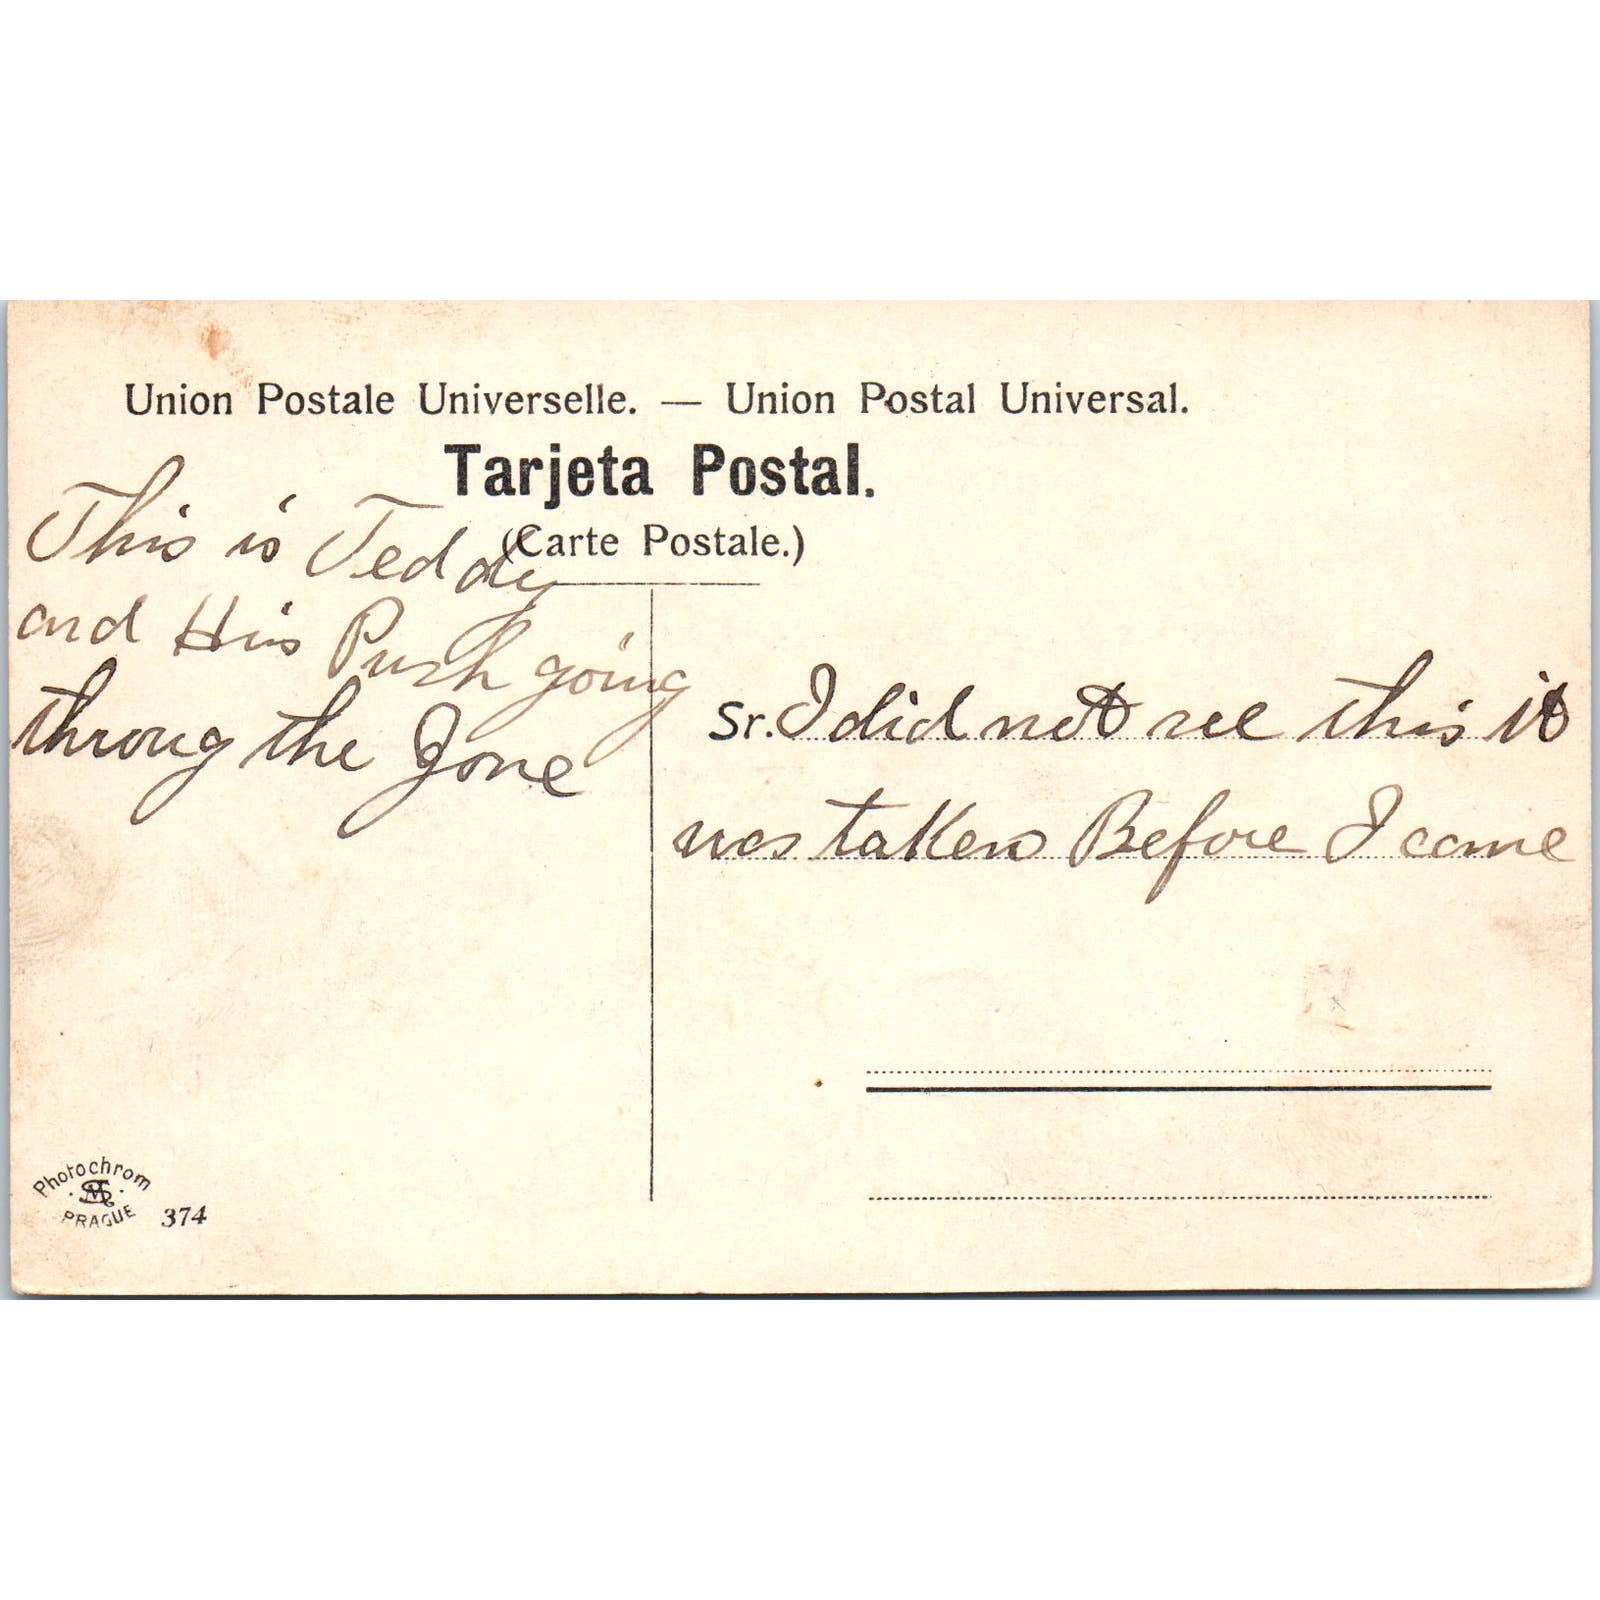 Union Postale Universelle. — Union Postal Universal.
Tarjeta Postal.
(Carte Postale.)
This is Teddy
and His Push going
throug the Zone
Sr. I did not see this it
was taken Before I came
Photochrom
PRAGUE
374